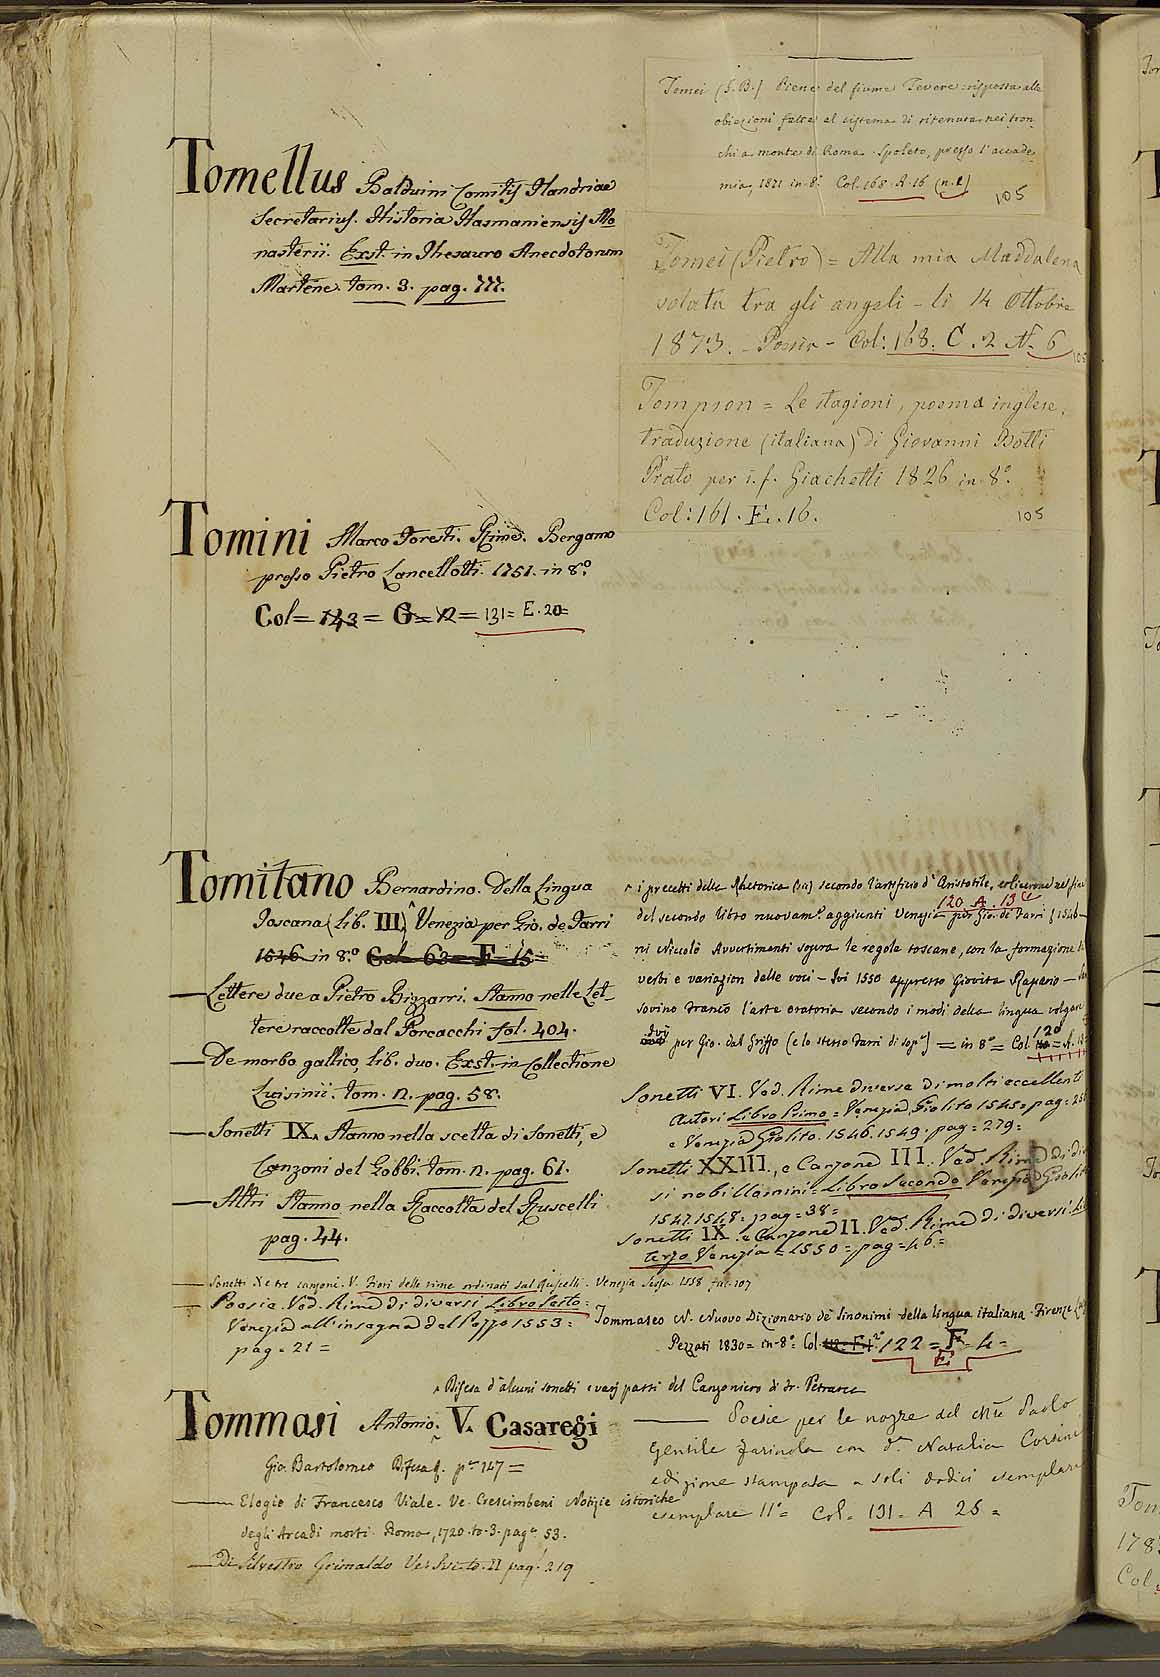 Tomellus Balduini Comitis Flandriae
Secretarius. Historia Hasmaniensis Mo
nasterii. Exst. in Thesauro Anecdotorum
Martène. tom. 3. pag. 777.
Tomini Marco Foresti. Rime. Bergamo
presso Pietro Lancellotti. 1751. in 8.°
Col = 143 = G = 12 = 131 = E. 20 =
Tomitano Bernardino. Della Lingua
Toscana (lib. III.^ Venezia per Gio. de Farri
1546 in 8.° Col. 63 = F = 15 =
— Lettere due a Pietro Bizzarri. Stanno nelle Let-
tere raccolte dal Porcacchi fol. 404.
— De morbo gallico, lib. duo. Exst. in Collectione
Luisinii. tom. 2. pag. 58.
— Sonetti IX. Stanno nella scelta di Sonetti, e
Canzoni del Gobbi. tom. 2. pag. 61.
— Altri Stanno nella Raccolta del Ruscelli
pag. 44.
— Sonetti X e tre canzoni. V. Fiori delle rime ordinati dal Ruscelli. Venezia Sessa 1558 fac. 107
— Poesie. Ved. Rime di diversi Libro Sesto =
Venezia all'insegna del Pozzo 1553 =
pag = 21 =
^ Difesa d'alcuni sonetti e varj passi del Canzoniero di Fr. Petrarca
Tommasi Antonio. V. Casaregi
Gio. Bartolomeo Difesa &. pag. 147 =
— Elogio di Francesco Viale. Ve. Crescimbeni Notizie istoriche
degli Arcadi morti. Roma, 1720. to. 3. pag. 53.
— Di Silvestro Grimaldo Ve. Ivi to. II pag. 219
Tomei (G. B.) Piene del fiume Tevere: risposta alle
obiezioni fatte al sistema di ritenuta nei tron-
chi a monte di Roma. Spoleto, presso l'accade-
mia, 1871 in 8.° Col. 168. A. 16 (n. 2)
105
Tomei (Pietro) = Alla mia Maddalena
volata tra gli angeli - li 14 Ottobre
1873. - Poesie - Col: 168. C. 2 N. 6
105
Tompson = Le stagioni, poema inglese,
traduzione (italiana) di Giovanni Botti
Prato per i. f. Giachetti 1826 in 8.°
Col: 161. E. 16.
105
^ i precetti della Rhetorica (sic) secondo l'artificio d'Aristotile, e Cicerone nel fine
120. A. 13
del secondo libro nuovam.e aggiunti Venezia per Gio. de Farri { 1546 -
ni Niccolò Avvertimenti sopra le regole toscane, con la formazione
verbi e variazion delle voci - Ivi 1550 appresso Giovita Rapario -
sovino Franco l'arte oratoria secondo i modi della lingua volgar
Ivi per Gio. dal Griffo (e lo stesso Farri di sop.a) = in 8° = Col 120 = A. 13
Sonetti VI. Ved. Rime diverse di molti eccellenti
Autori Libro Primo = Venezia Giolito 1545 = pag =
e Venezia Giolito. 1546. 1549. pag = 279 =
Sonetti XXIII., e Canzone III. Ved. Rime di di
si nobillomini = Libro Secondo Venezia Gioli
1547. 1548 = pag = 38 =
Sonetti IX. e Canzone II. Ved. Rime di diversi
terzo Venezia = 1550 = pag = 46 =
Tommaseo N. Nuovo Dizionario de' Sinonimi della lingua italiana. Firenze
Pezzati 1830 = in 8° = Col. 122 = F = 4 =
E.
— Poesie per le nozze del Mse Paolo
Gentile Farinola con D.a Natalia Corsini
edizione stampata a soli dodici esemplari
esemplare 11° = Col. 131 = A 25 =